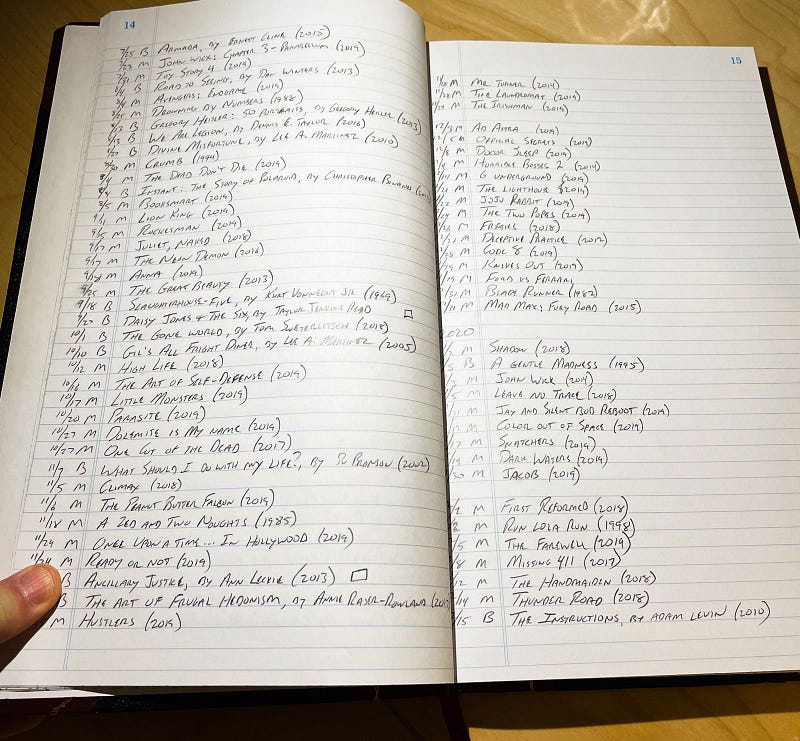 14
7/25 B Armada, by Ernest Cline (2015)
7/23 M John Wick: Chapter 3 - Parabellum (2019)
7/31 M Toy Story 4 (2019)
8/1 B Road to Seeing, by Dan Winters (2013)
M Avengers: Endgame (2019)
M Drowning by Numbers (1988)
B Gregory Heisler: 50 Portraits, by Gregory Heisler (2013)
8/13 B We Are Legion, by Dennis E. Taylor (2016)
B Divine Misfortune, by Lee A. Martinez (2010)
M Crumb (1994)
M The Dead Don't Die (2019)
B Instant: The Story of Polaroid, by Christopher
M Booksmart (2019)
9/1 M Lion King (2019)
9/5 M Rocketman (2019)
9/17 M Juliet, Naked (2018)
9/17 M The Neon Demon (2016)
M Anna (2019)
M The Great Beauty (2013)
9/18 B Slaughterhouse-Five, by Kurt Vonnegut Jr. (1969)
9/27 B Daisy Jones & The Six, by Taylor Jenkins Read
10/1 B The Gone World, by Tom Sweterlitsch (2018)
10/10 B Gil's All Fright Diner, by Lee A. Martinez (2005)
10/12 M High Life (2018)
10/16 M The Art of Self-Defense (2019)
10/17 M Little Monsters (2019)
10/20 M Parasite (2019)
10/27 M Dolemite Is My Name (2019)
10/27 M One Cut of the Dead (2017)
11/7 B What Should I Do With My Life?, by Po Bronson (2002)
11/5 M Climax (2018)
11/6 M The Peanut Butter Falcon (2019)
11/18 M A Zed and Two Noughts (1985)
11/24 M Once Upon a Time... In Hollywood (2019)
11/24 M Ready or Not (2019)
B Ancillary Justice, by Ann Leckie (2013)
B The Art of Frugal Hedonism, by Annie Raser-Rowland
M Hustlers (2019)
15
M Mr. Turner (2014)
M The Laundromat (2019)
M The Irishman (2019)
12/3 M Ad Astra (2019)
M Official Secrets (2019)
M Doctor Sleep (2019)
M Horrible Bosses 2 (2014)
M 6 Underground (2019)
M The Lighthouse (2019)
M Jojo Rabbit (2019)
M The Two Popes (2019)
M Freaks (2018)
M Deceptive Practice (2012)
M Code 8 (2019)
M Knives Out (2019)
M Ford vs Ferrari
M Blade Runner (1982)
M Mad Max: Fury Road (2015)
2020
M Shadow (2018)
B A Gentle Madness (1995)
M John Wick (2014)
M Leave No Trace (2018)
M Jay and Silent Bob Reboot (2019)
M Color Out of Space (2019)
M Snatchers (2019)
M Dark Waters (2019)
M Jacob (2019)
M First Reformed (2018)
M Run Lola Run (1998)
M The Farewell (2019)
M Missing 411 (2017)
M The Handmaiden (2018)
M Thunder Road (2018)
B The Instructions, by Adam Levin (2010)